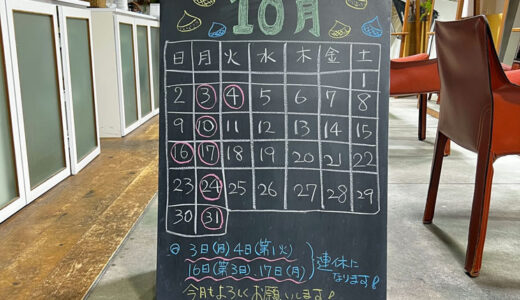 10月
日 月 火 水 木 金 土
1
2 3 4 5 6 7 8
9 10 11 12 13 14 15
16 17 18 19 20 21 22
23 24 25 26 27 28 29
30 31
◎ 3日(月)4日(第1火)
16日(第3日).17日(月)
}連休に
なります!
今月もよろしくお願いします!